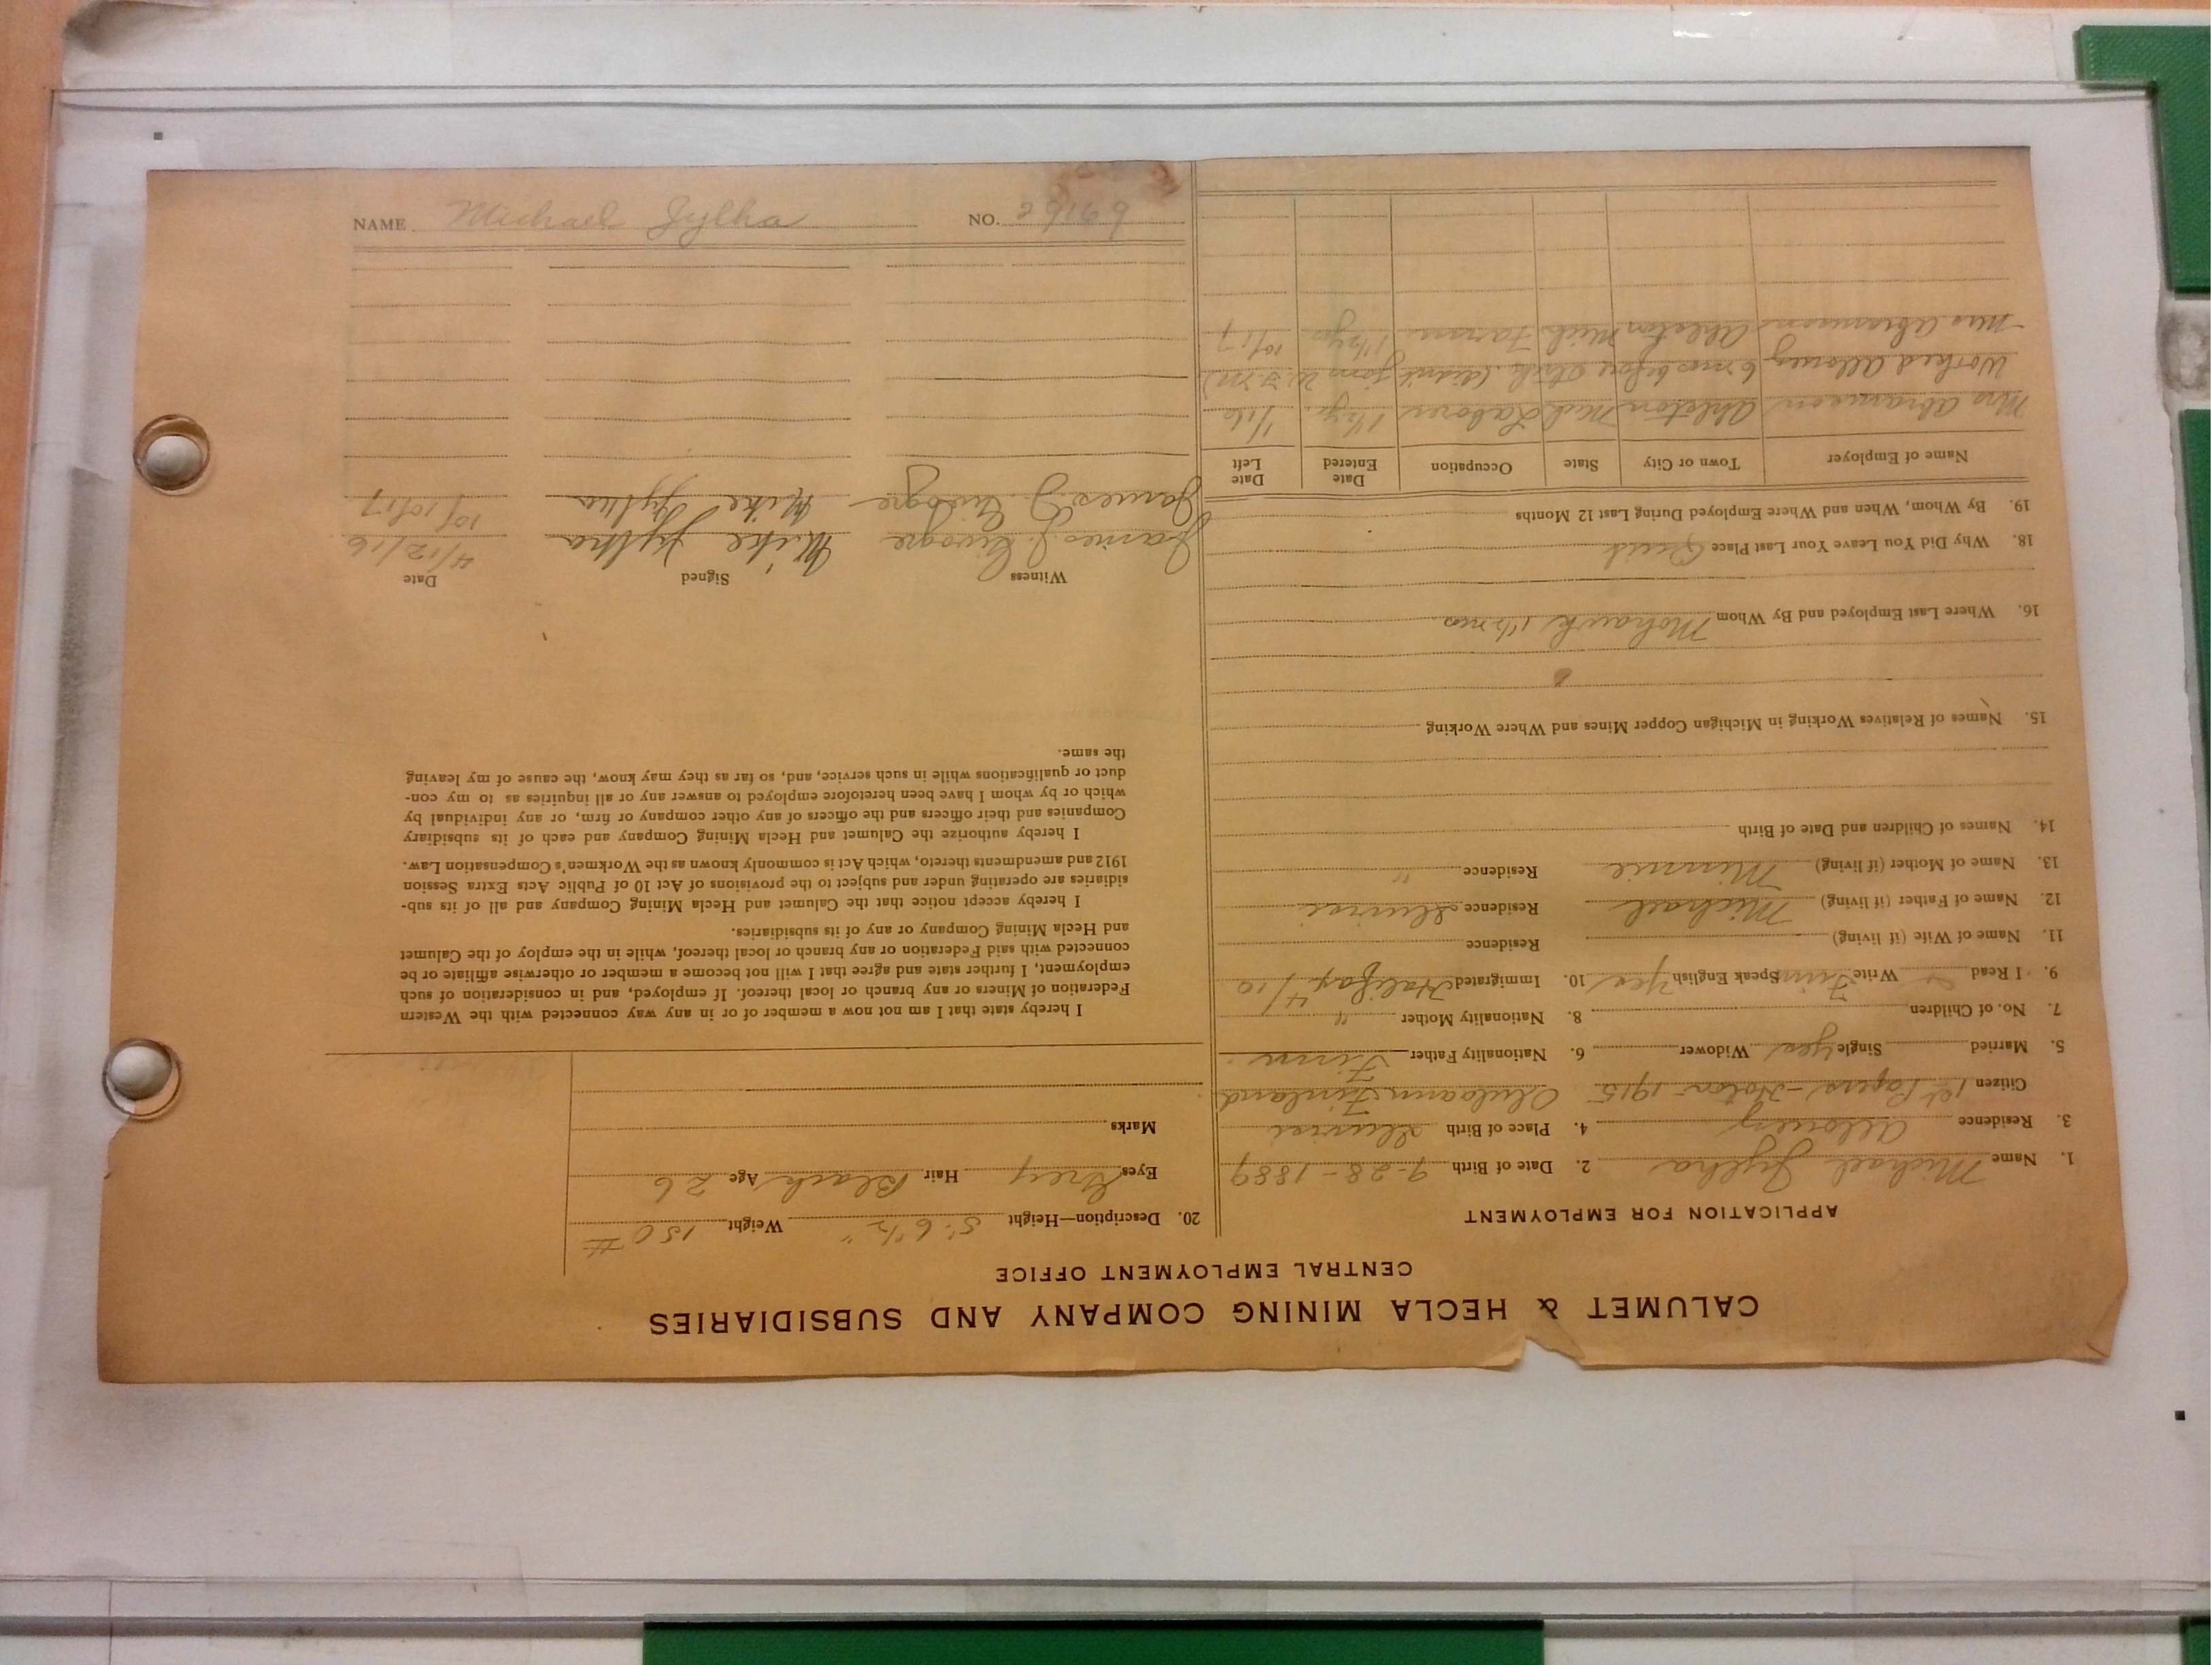 CALUMET & HECLA MINING COMPANY AND SUBSIDIARIES
CENTRAL EMPLOYMENT OFFICE
APPLICATION FOR EMPLOYMENT
1. Name Michael Jylha 2. Date of Birth 9-28-1889
3. Residence Allouez 4. Place of Birth
Citizen 1st Papers - 1915 Finland
5. Married Single Yes Widower 6. Nationality Father Finn
7. No. of Children 8. Nationality Mother "
9. I Read Write Finn Speak English Yes 10. Immigrated Halifax 4/10
11. Name of Wife (if living) Residence
12. Name of Father (if living) Michael Residence
13. Name of Mother (if living) Minnie Residence "
14. Names of Children and Date of Birth
15. Names of Relatives Working in Michigan Copper Mines and Where Working
16. Where Last Employed and By Whom Mohawk 1½ mos
18. Why Did You Leave Your Last Place Quit
19. By Whom, When and Where Employed During Last 12 Months
Name of Employer Town or City State Occupation Date Entered Date Left
Mrs Abramson Mich Laborer 1½ yr. 1/16
Worked Allouez 6 mos before strike (didn't join W.F.M)
Mrs Abramson Mich Farm 1½ yr 10/17
20. Description—Height 5' 6½" Weight 150 #
Eyes Grey Hair Black Age 26
Marks
I hereby state that I am not now a member of or in any way connected with the Western
Federation of Miners or any branch or local thereof. If employed, and in consideration of such
employment, I further state and agree that I will not become a member or otherwise affiliate or be
connected with said Federation or any branch or local thereof, while in the employ of the Calumet
and Hecla Mining Company or any of its subsidiaries.
I hereby accept notice that the Calumet and Hecla Mining Company and all of its sub-
sidiaries are operating under and subject to the provisions of Act 10 of Public Acts Extra Session
1912 and amendments thereto, which Act is commonly known as the Workmen's Compensation Law.
I hereby authorize the Calumet and Hecla Mining Company and each of its subsidiary
Companies and their officers and the officers of any other company or firm, or any individual by
which or by whom I have been heretofore employed to answer any or all inquiries as to my con-
duct or qualifications while in such service, and, so far as they may know, the cause of my leaving
the same.
Witness Signed Date
James J. Mike Jylha 4/12/16
James J. Mike Jylha 10/10/17
NAME Michael Jylha NO. 29169